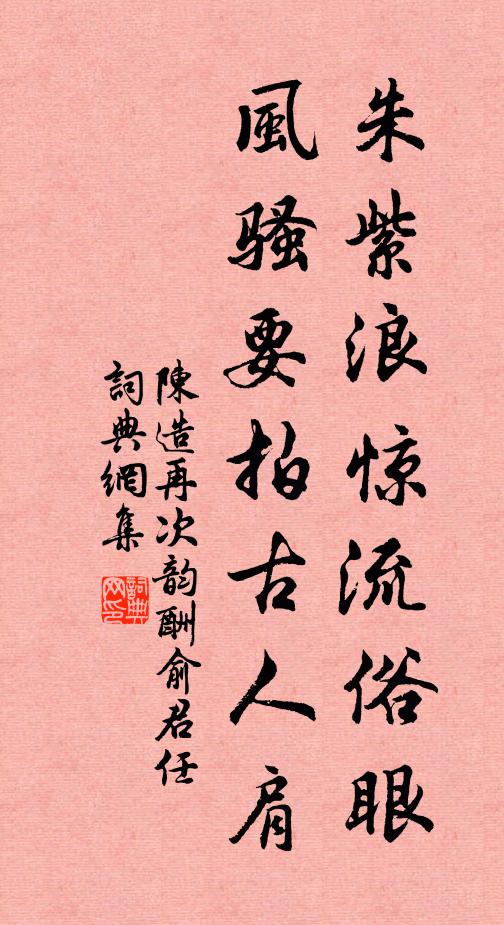 朱紫浪惊流俗眼
風骚要拍古人肩
陳造再次韵酬俞君任
詞典網集
詞典網印